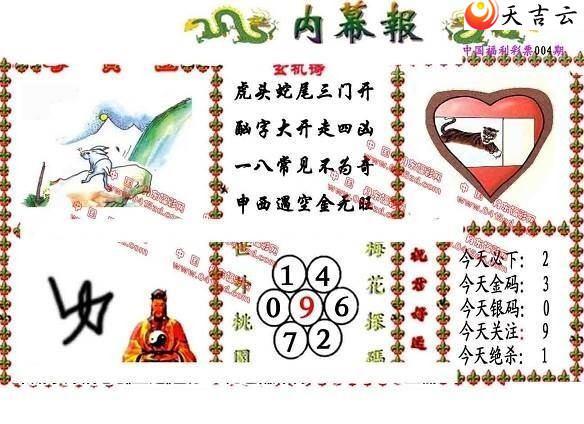 内幕報
天吉云
中国福利彩票004期
玄机诗
虎头蛇尾三门开
酗字大开走四凶
一八常见不为奇
申西遇空金无旺
世外桃園
1 4
0 9 6
7 2
梅花探碼
祝君好运
今天必下：2
今天金码：3
今天银码：0
今天关注：9
今天绝杀：1